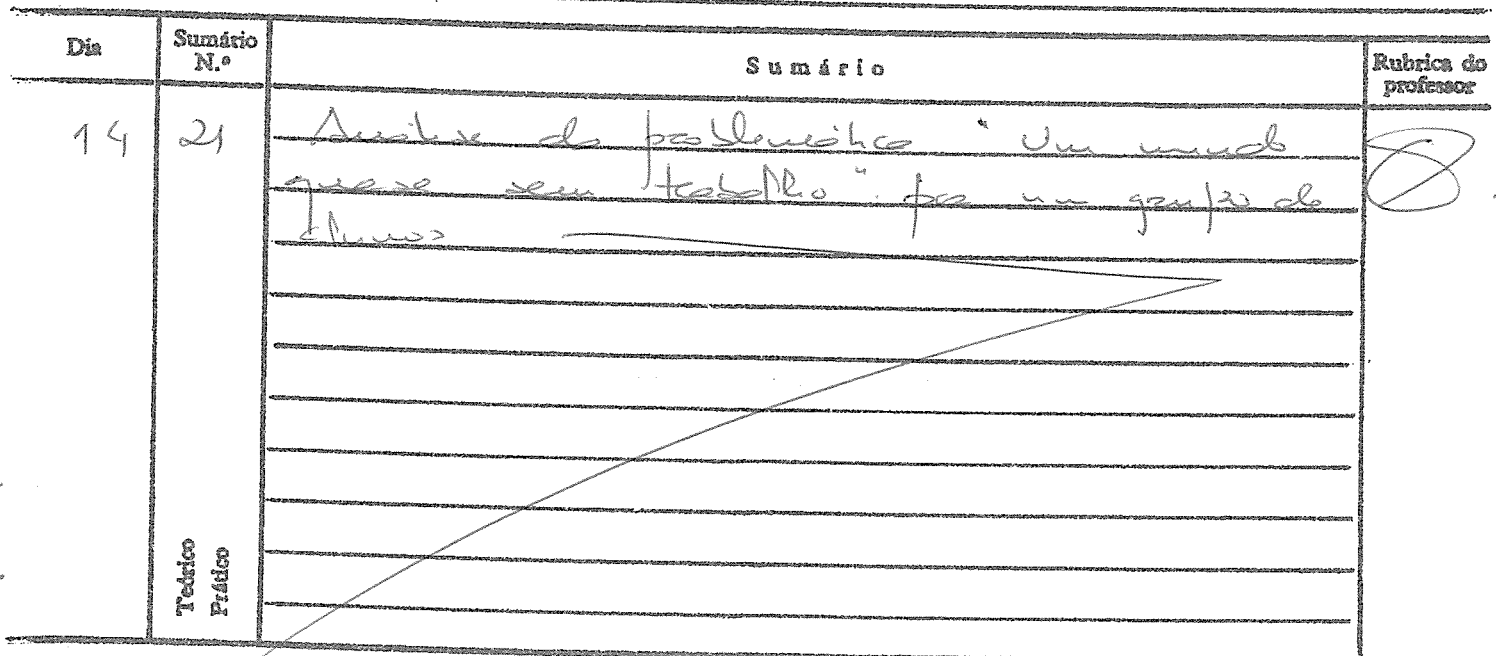 Dia
Sumário N.º
Sumário
Rubrica do professor
14
21
Análise da problemática "Um mundo
quase sem trabalho" por um grupo de
alunos
Teórico
Prático